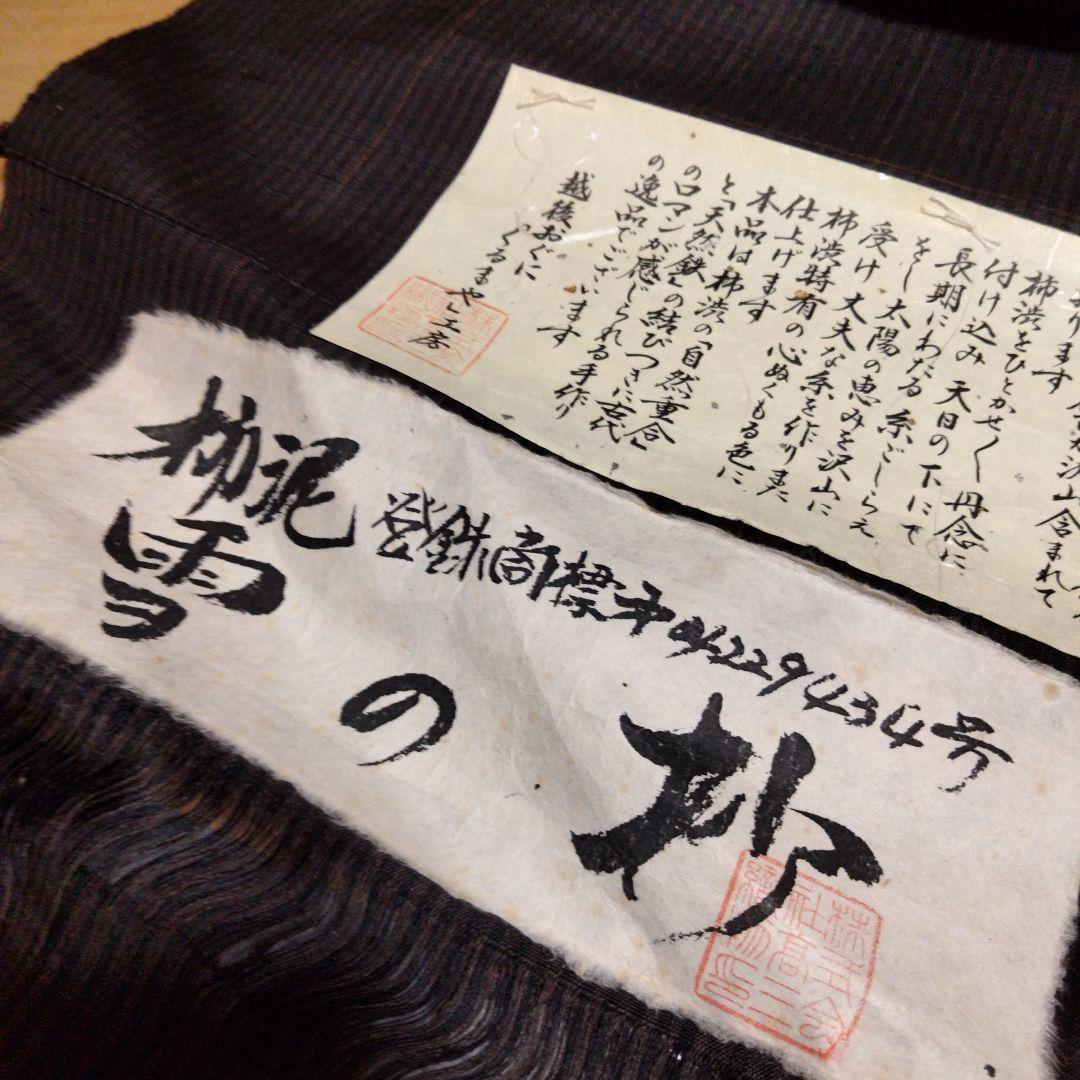 柿渋をひとかせ〱丹念に
付け込み 天日の下にて
長期にわたる糸ごしらえ
をし 太陽の恵みを沢山に
受け 丈夫な糸を作りまた
柿渋特有の心ぬくもる色に
仕上げます
本品は柿渋の「自然重合」
と「天然鉄」の結びつきに古代
のロマンが感じられる手作り
の逸品でございます
越後おぐに
工房
雪の
登録商標第4229434号